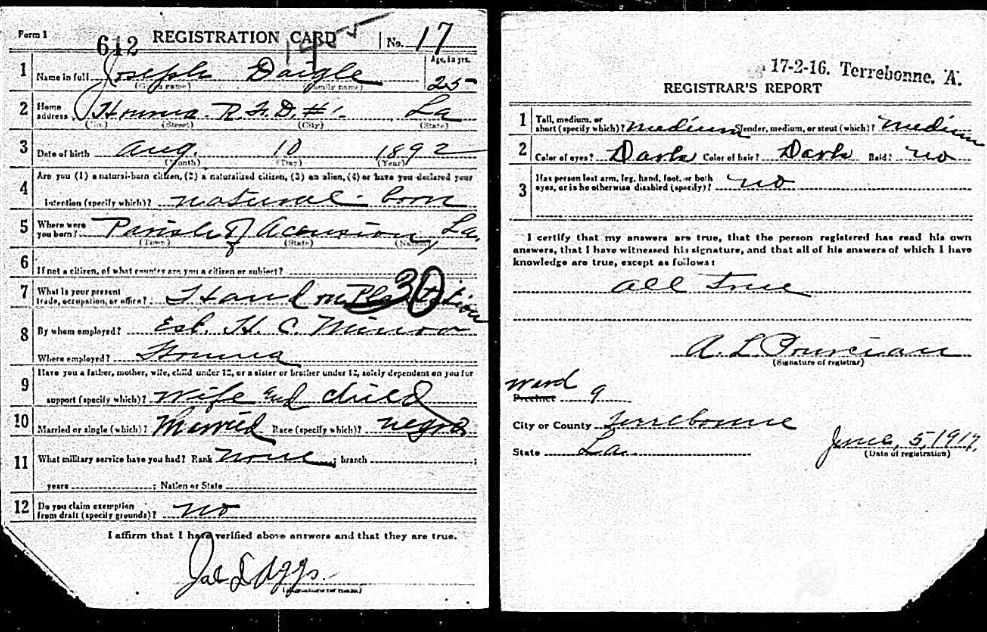 Form 1 612 REGISTRATION CARD No. 17
1 Name in full Joseph Daigle Age, in yrs. 25
(Given name) (Family name)
2 Home address Houma R.F.D. #1. La
(No.) (Street) (City) (State)
3 Date of birth Aug. 10 1892
(Month) (Day) (Year)
4 Are you (1) a natural-born citizen, (2) a naturalized citizen, (3) an alien, (4) or have you declared your
intention (specify which)? natural-born
5 Where were you born? Parish of Acension, La.
(Town) (State) (Nation)
6 If not a citizen, of what country are you a citizen or subject?
7 What is your present trade, occupation, or office? Hand on 30
8 By whom employed? Est. H. C. Minor
Where employed? Houma
9 Have you a father, mother, wife, child under 12, or a sister or brother under 12, solely dependent on you for
support (specify which)? Wife and child
10 Married or single (which)? Married Race (specify which)? negro
11 What military service have you had? Rank None ; branch ;
years ; Nation or State
12 Do you claim exemption from draft (specify grounds)? no
I affirm that I have verified above answers and that they are true.
17-2-16. Terrebonne. A.
REGISTRAR'S REPORT
1 Tall, medium, or short (specify which)? medium Slender, medium, or stout (which)? medium
2 Color of eyes? Dark Color of hair? Dark Bald? no
3 Has person lost arm, leg, hand, foot, or both eyes, or is he otherwise disabled (specify)? no
I certify that my answers are true, that the person registered has read his own
answers, that I have witnessed his signature, and that all of his answers of which I have
knowledge are true, except as follows:
all true
A. L.
(Signature of registrar)
Ward
Precinct 9
City or County Terrebonne
State La. June 5, 1917.
(Date of registration)